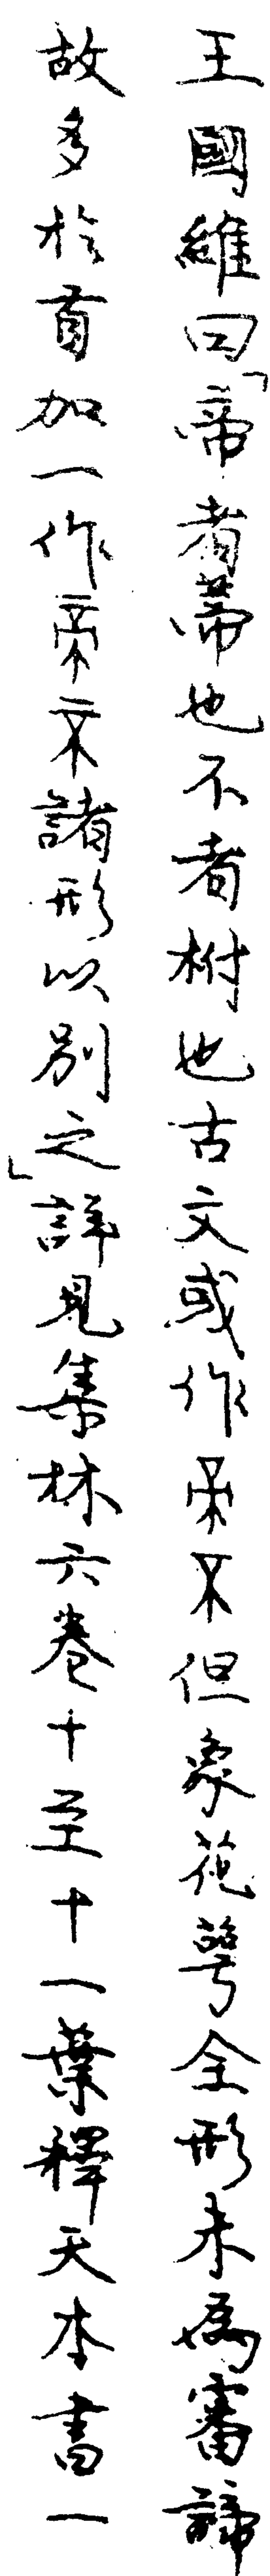 王國維曰「帝者蒂也不者柎也古文或作帝不但象花萼全形未為審諦
故多於首加一作帝不諸形以別之」詳見集林六卷十至十一葉釋天本書一